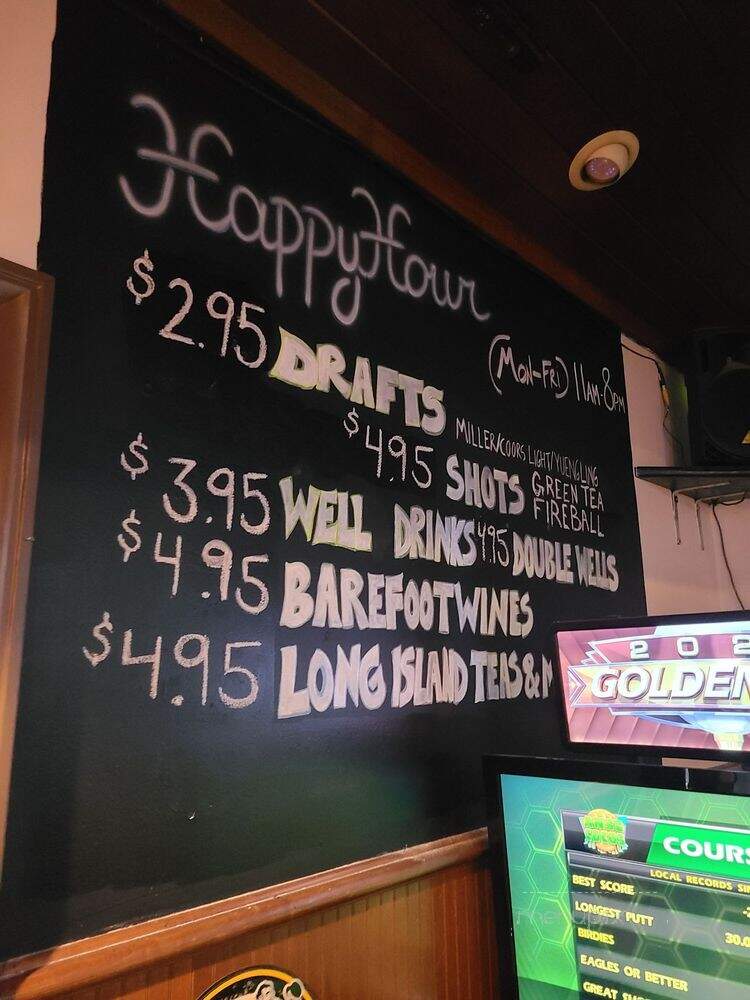 Happy Hour
(MON-FRI) 11AM-8PM
$2.95 DRAFTS MILLER/COORS LIGHT/YUENGLING
$4.95 SHOTS GREEN TEA
FIREBALL
$3.95 WELL DRINKS 4.95 DOUBLE WELLS
$4.95 BAREFOOT WINES
$4.95 LONG ISLAND TEAS &
GOLDEN
BEST SCORE
LONGEST PUTT
BIRDIES 30.0
EAGLES OR BETTER
LOCAL RECORDS